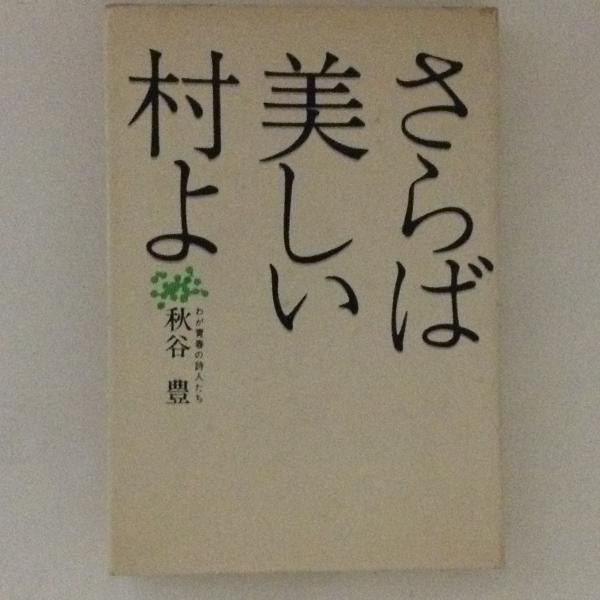 さらば
美しい
村よ
わが青春の詩人たち
秋谷 豊